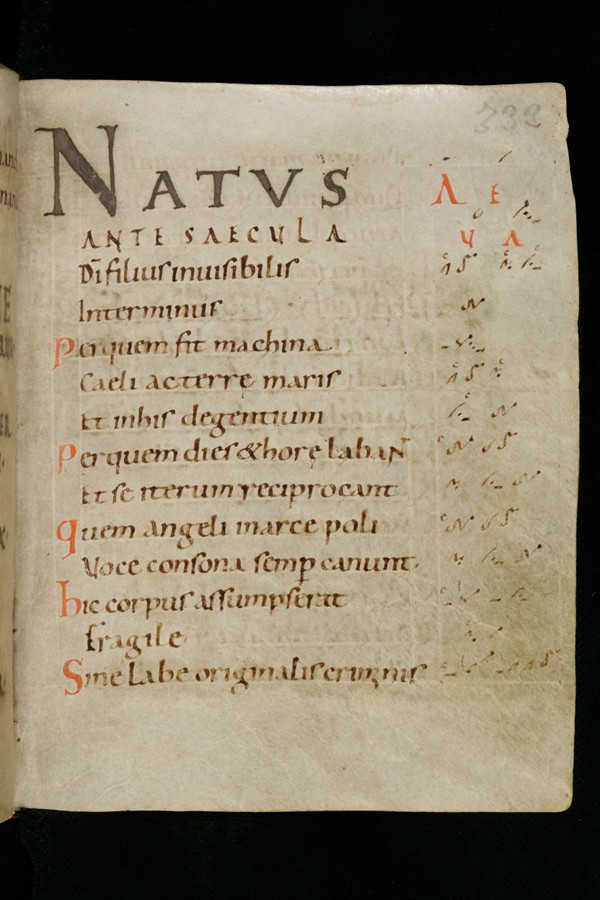 339
NATVS Λ E
ANTE SAECULA U A
Dī filius inuisibilis
Interminus
Per quem fit machina
Caeli ac terre maris
Et in his degentium
Per quem dies & hore labaN
Et se iterum reciprocant
quem angeli in arce poli
Voce consona semp canunt.
hic corpus assumpserat
fragile
Sine labe originalis criminis